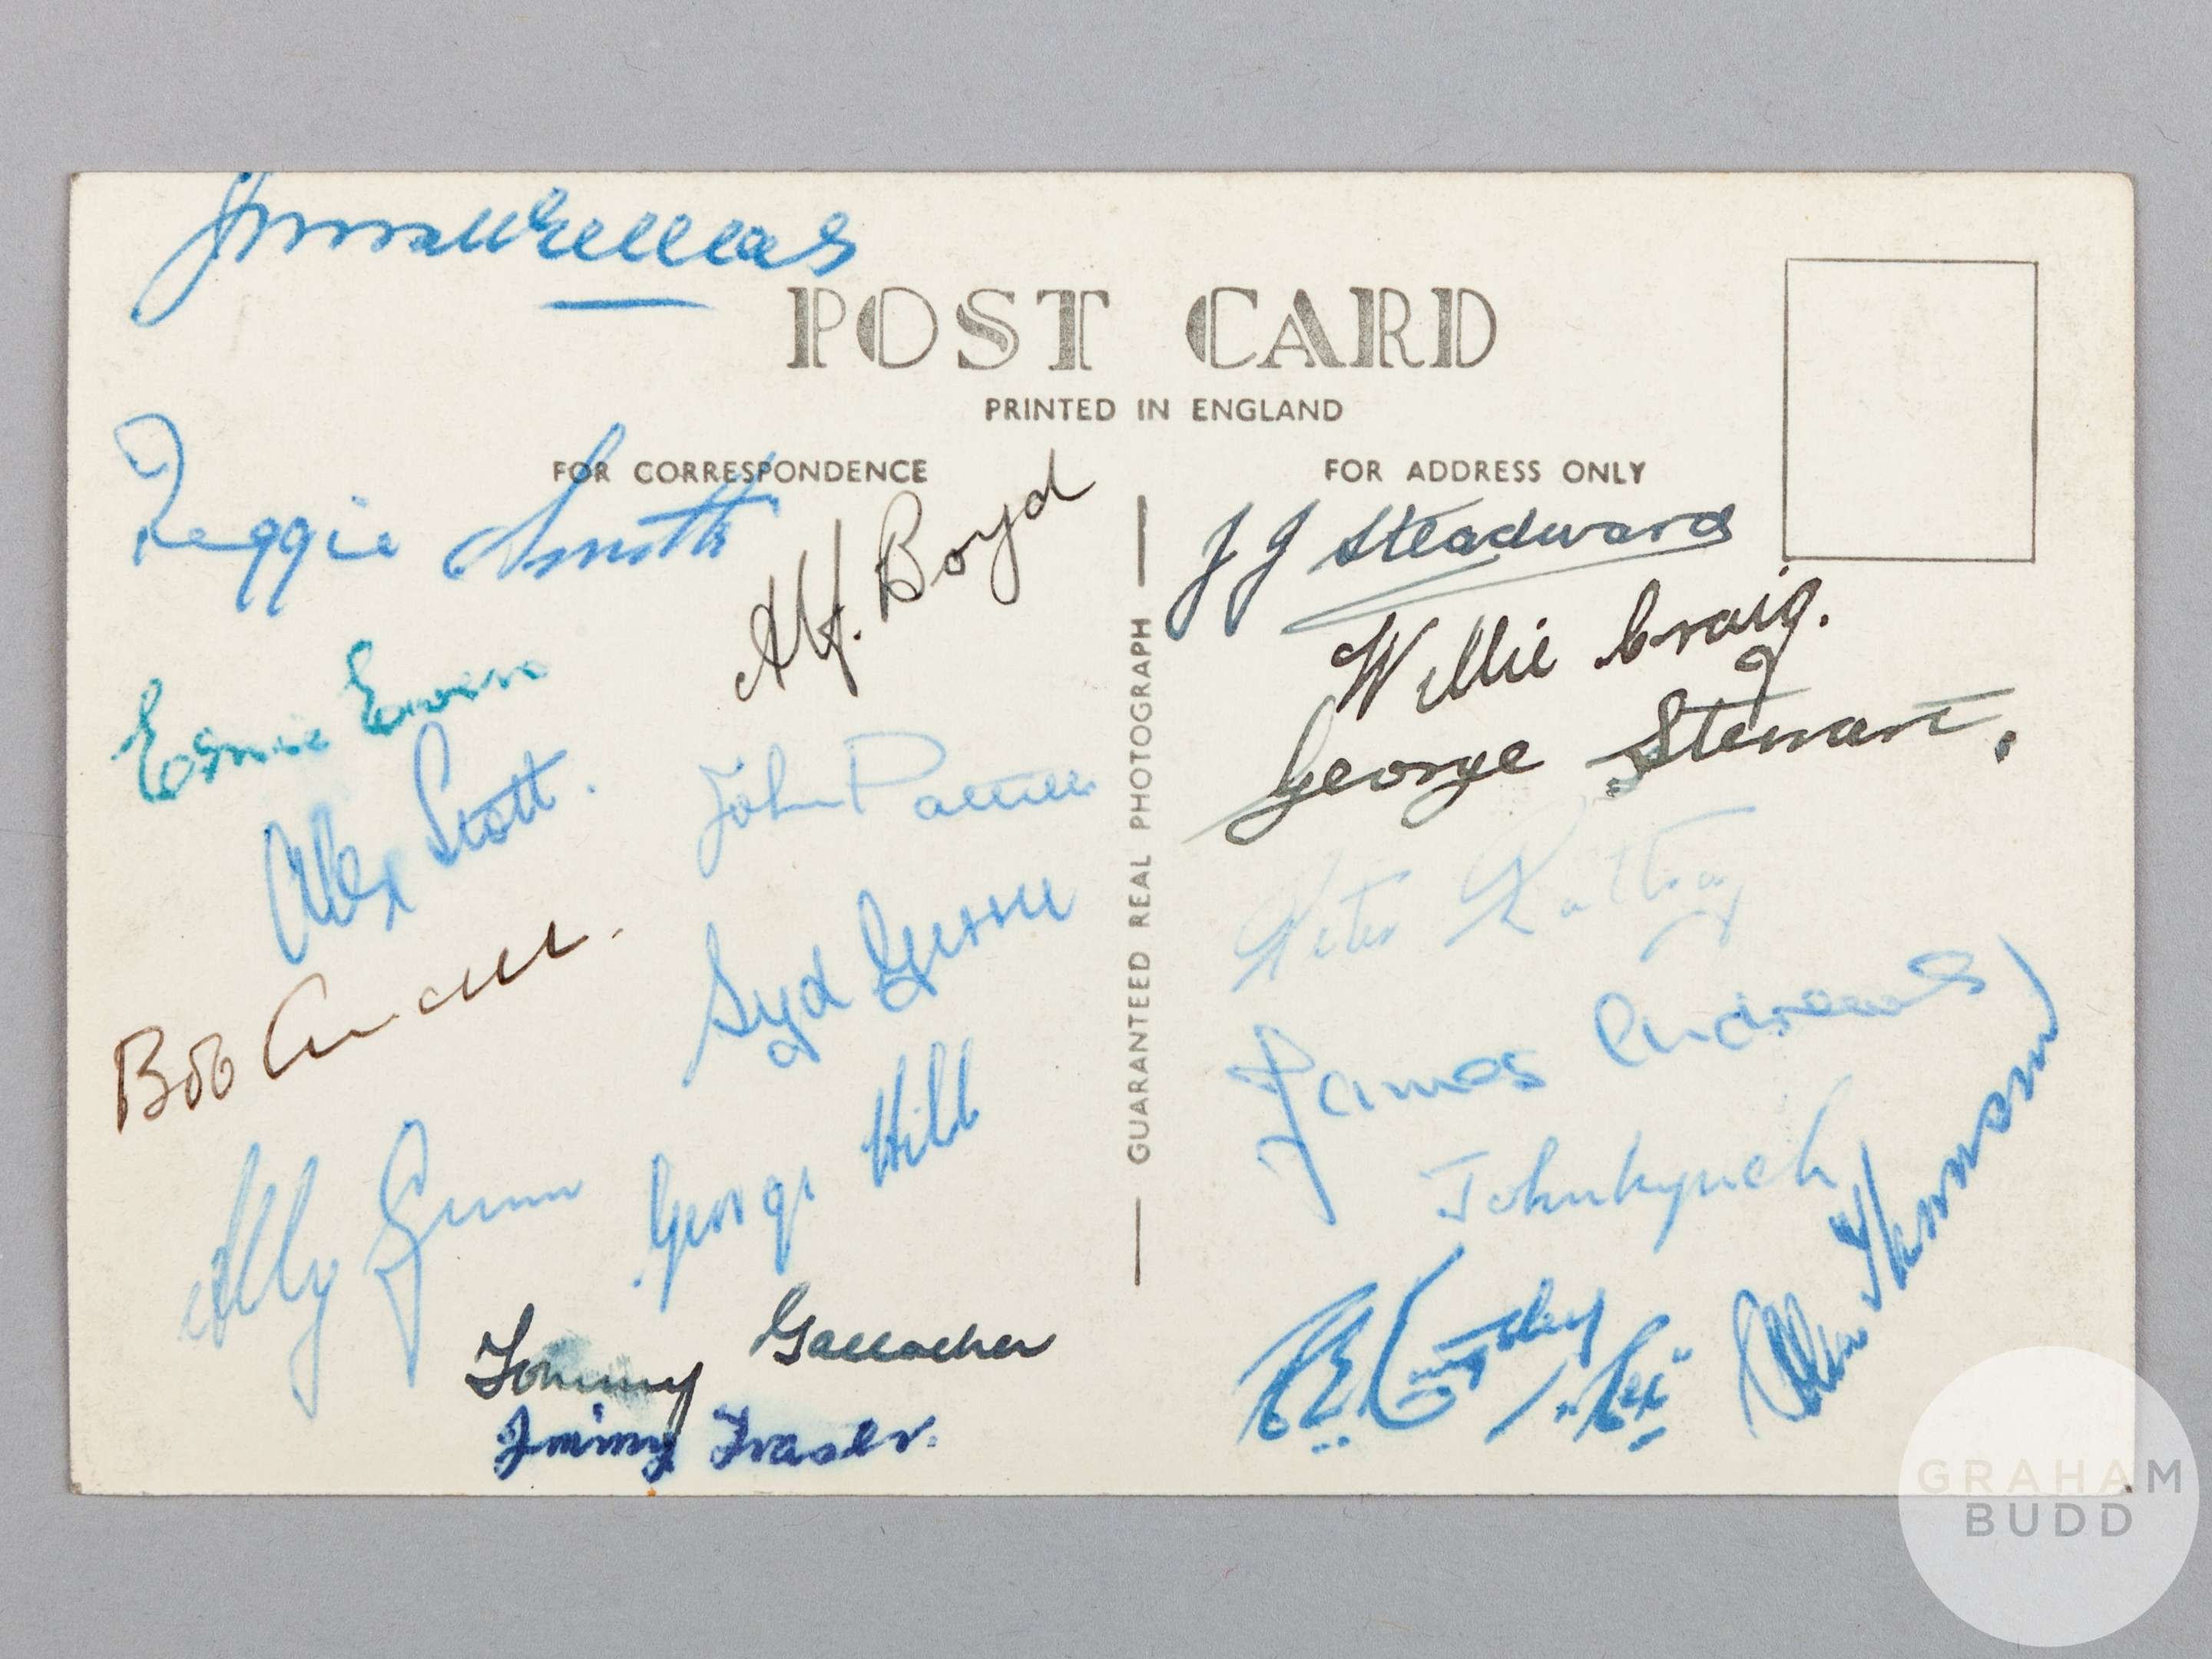 POST CARD
PRINTED IN ENGLAND
FOR CORRESPONDENCE
FOR ADDRESS ONLY
Reggie Smith
Alf. Boyd
Ernie Ewen
Alex Scott.
John Pattillo
Bob
Syd Gerrie
Ally Gunn
George Hill
Tommy Gallacher
Jimmy Fraser.
GUARANTEED REAL PHOTOGRAPH
J J Steadward
Willie Craig.
George Stewart.
Peter Rattray
James Andrews
John Lynch
"Rex"
GRAHAM
BUDD